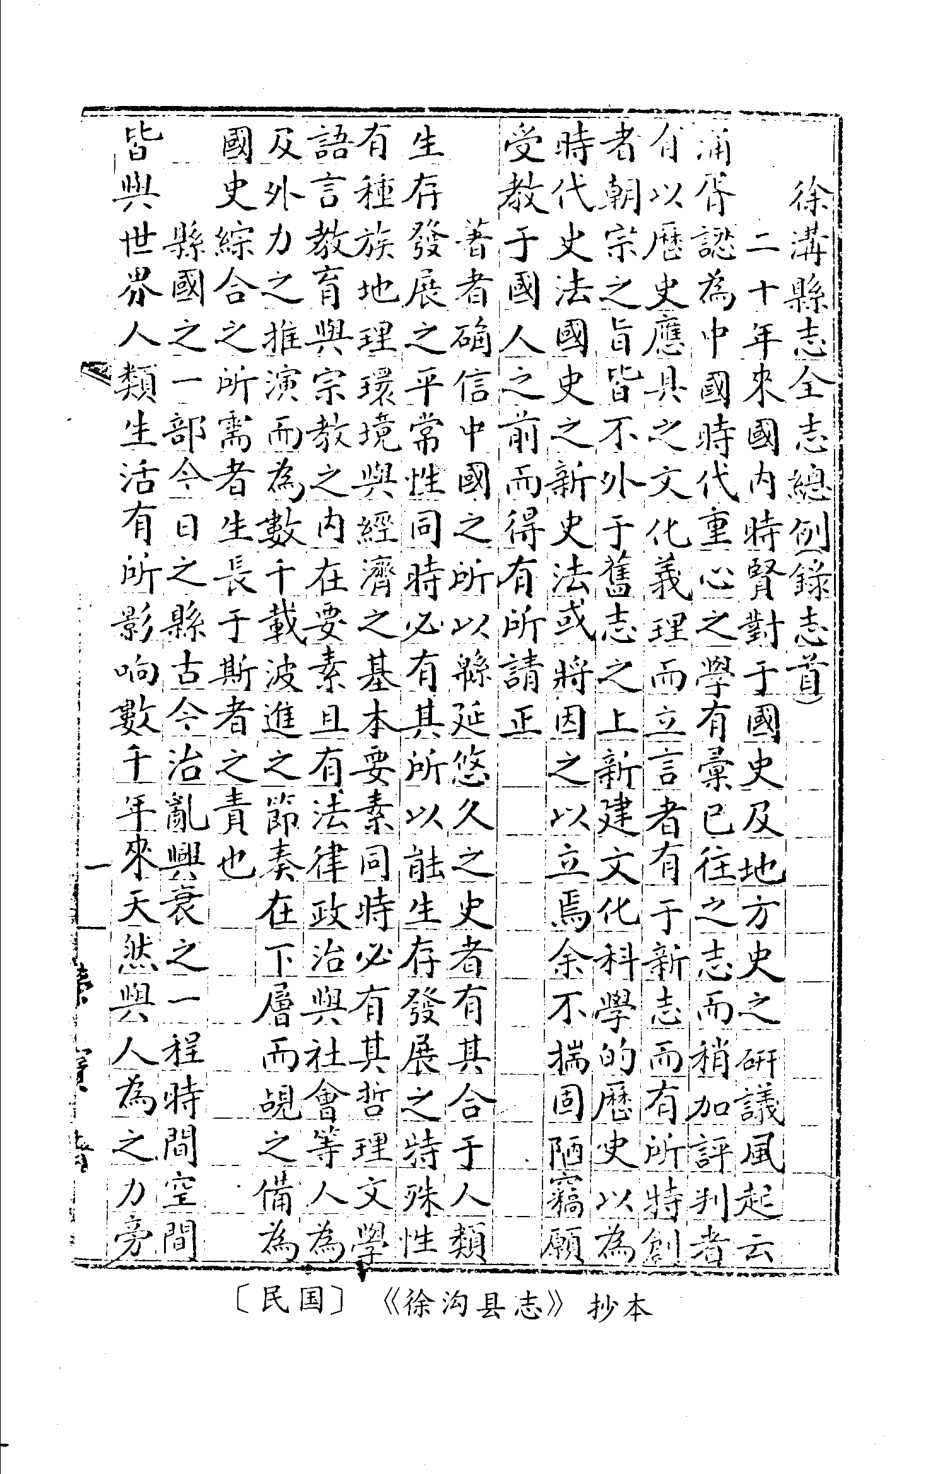 徐溝縣志全志總例(錄志首)
二十年來國內時賢對于國史及地方史之研議風起云
涌胥認為中國時代重心之學有彙已往之志而稍加評判者
有以歷史應具之文化義理而立言者有于新志而有所特創
者朝宗之旨皆不外于舊志之上新建文化科學的歷史以為
時代史法國史之新史法或將因之以立焉余不揣固陋竊願
受教于國人之前而得有所請正
著者确信中國之所以緜延悠久之史者有其合于人類
生存發展之平常性同時必有其所以能生存發展之特殊性
有種族地理環境與經濟之基本要素同時必有其哲理文學
語言教育與宗教之內在要素且有法律政治與社會等人為
及外力之推演而為數千載波進之節奏在下層而覘之備為
國史綜合之所需者生長于斯者之責也
縣國之一部今日之縣古今治亂興衰之一程時間空間
皆與世界人類生活有所影响數千年來天然與人為之力旁
一
〔民国〕《徐沟县志》抄本